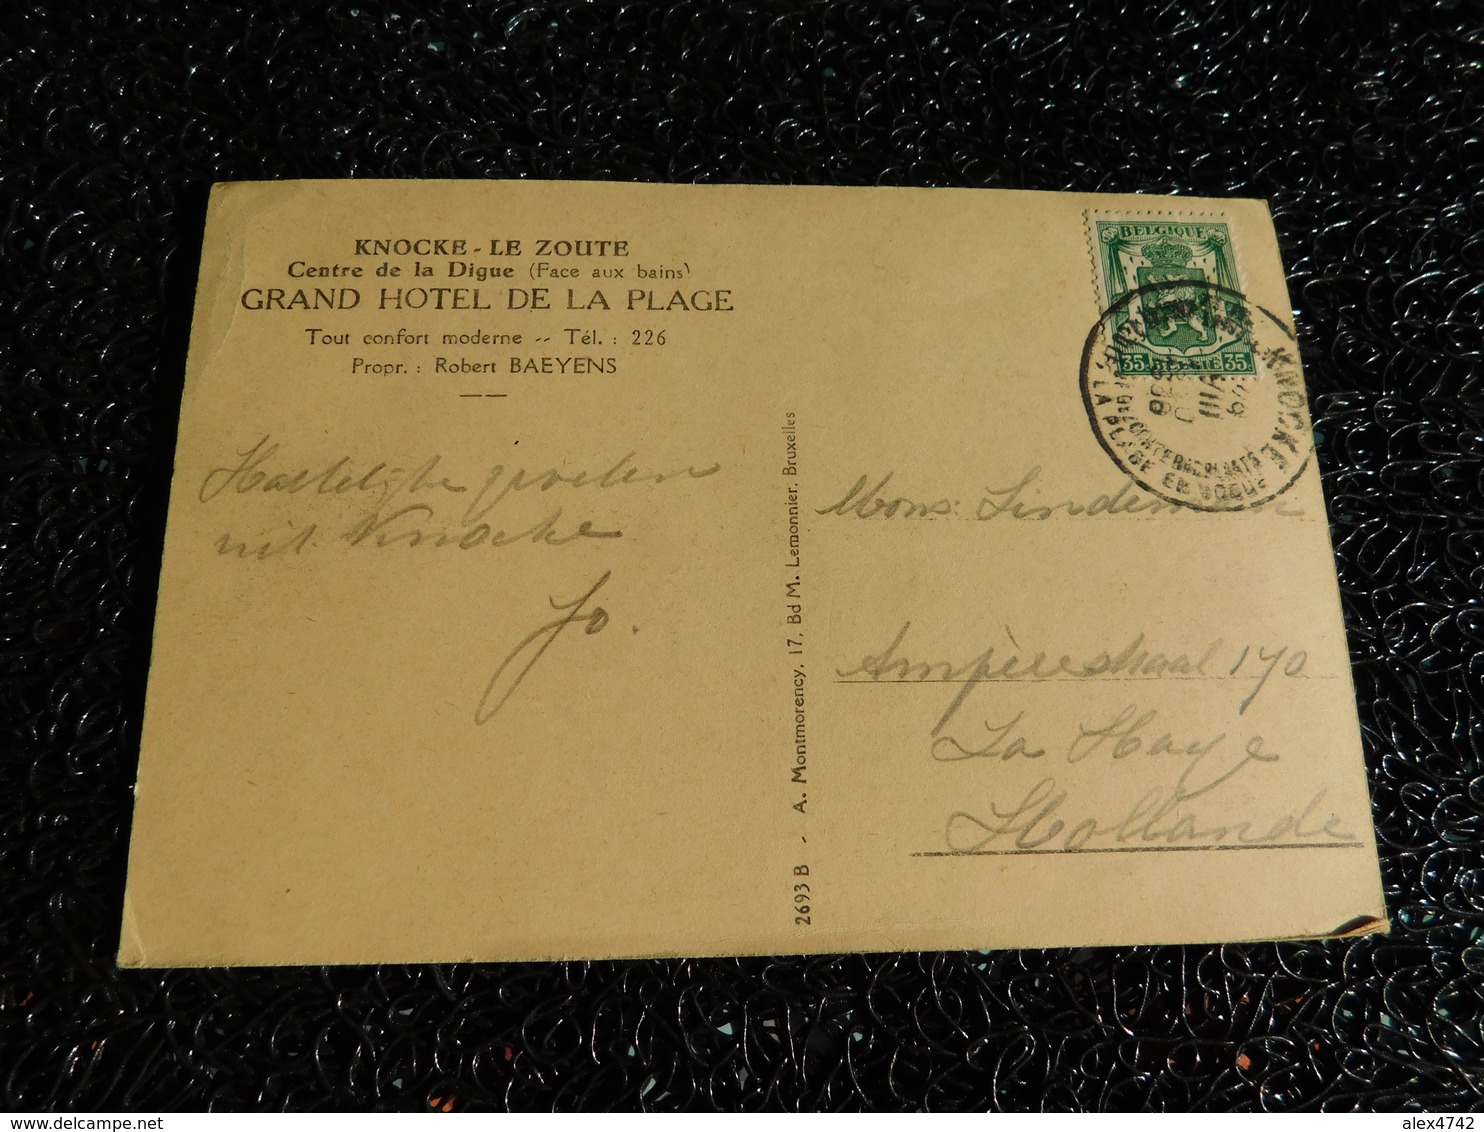 KNOCKE - LE ZOUTE
Centre de la Digue (Face aux bains)
GRAND HOTEL DE LA PLAGE
Tout confort moderne -- Tél. : 226
Propr. : Robert BAEYENS
Hartelijke groeten
uit Knocke
Jo.
2693 B - A. Montmorency, 17, Bd M. Lemonnier, Bruxelles
BELGIQUE
35 BELGIË 35
KNOCKE
LA PLAGE EN VOGUE
Mons. Lindeman
Ampèrestraat 170
La Haye
Hollande
alex4742